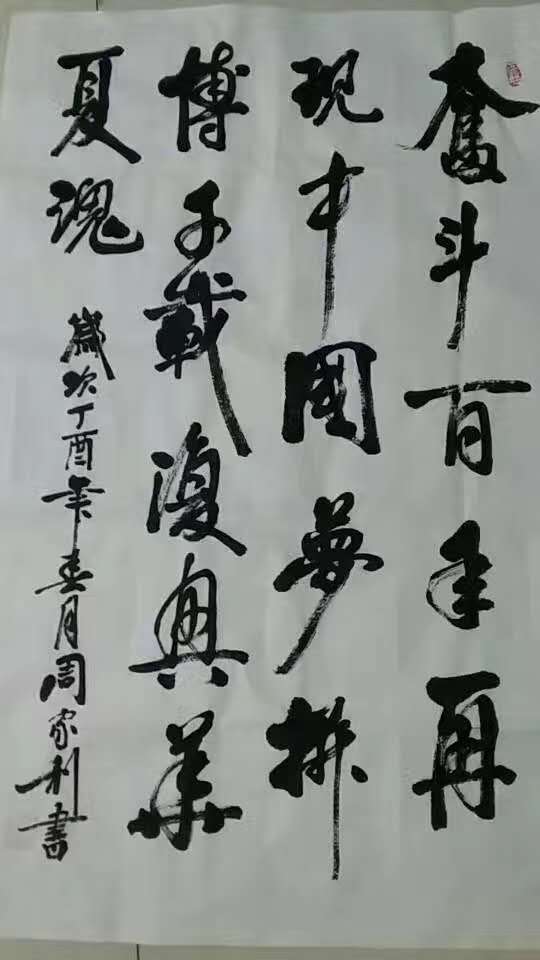 奮斗百年再
現中國夢拼
博千載復興華
夏魂
歲次丁酉年春月周家利書